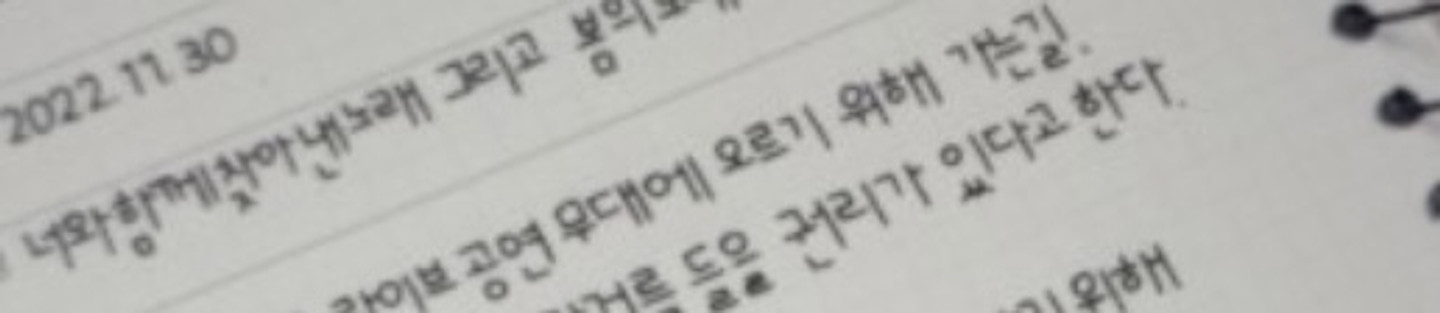 2022. 11. 30
너와 함께 찾아낸 노래 그리고 봄의
라이브 공연 무대에 오르기 위해 가는 길.
들을 권리가 있다고 한다.
위해